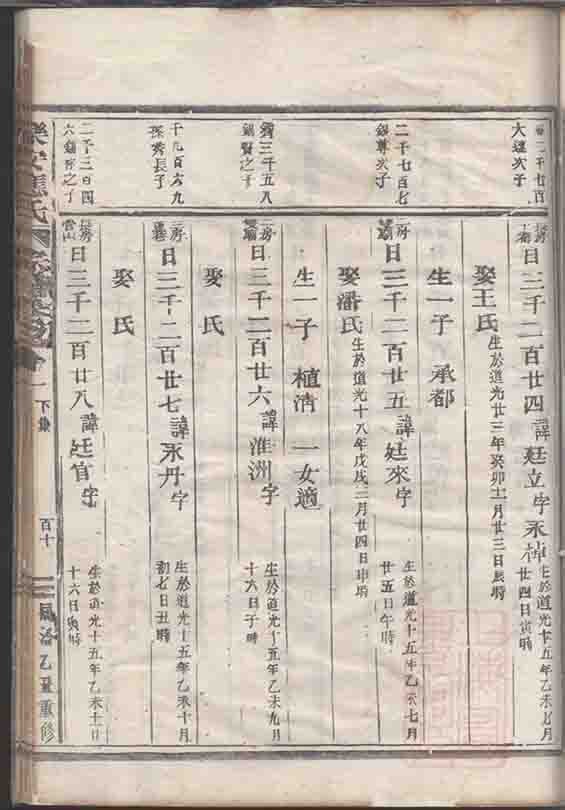 二千七百
大鏞次子
日三千二百廿四諱廷立字永
生於道光十五年乙未七月
廿四日寅時
娶王氏
生於道光廿三年癸卯十一月廿三日辰時
生一子 承都
二千七百七
錫尊次子
二房
日三千二百廿五諱廷來字
生於道光十五年乙未七月
廿五日午時
娶潘氏
生於道光十八年戊戌二月廿四日申時
生一子 植清 一女適
三千五八
錫賢之子
二房
日三千二百廿六諱淮洲字
生於道光十五年乙未九月
十六日子時
娶 氏
千九百六九
孫秀長子
二房
日三千二百廿七諱永丹字
生於道光十五年乙未十月
初七日丑時
娶 氏
二千三百四
六錦 之子
長房
雲山
日三千二百廿八諱廷官字
生於道光十五年乙未十一日
十六日寅時
樂安 氏
下集
百十
乙丑重修